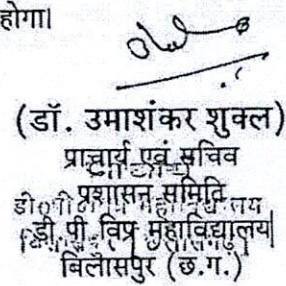 होगा।
(डॉ. उमाशंकर शुक्ल)
प्राचार्य एवं सचिव
प्रशासन समिति
डी.पी.विप्र महाविद्यालय
बिलासपुर (छ.ग.)